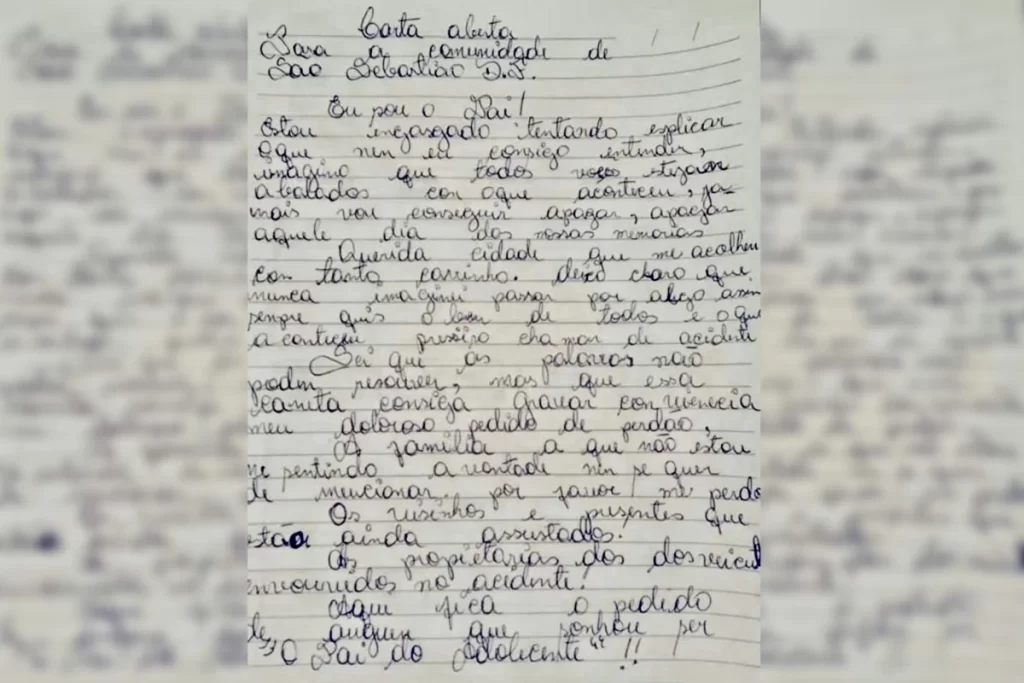 Carta aberta
Para a comunidade de
São Sebastião D.F.
Eu sou o Pai!
Estou engasgado tentando esplicar
oque nen eu consigo intender,
imagino que todos voces estejam
abalados con oque aconteceu, ja-
mais vou conseguir apagar, apagar
aquele dia das nossas memorias
Querida cidade que me acolheu
con tanto carrinho. deixo claro que
nunca imaginei passar por algo assim
sempre quis o bem de todos e o que
aconteceu preciso chamar de acidente
Sei que as palavras não
podem resolver, mas que essa
carrita consiga gravar con
meu doloroso pedido de perdão,
A familia a que não estou
me sentindo a vontade nen se quer
de mencionar, por favor me perdo
Os visinhos e presentes que
estão ainda assustados.
As propietarias dos dos veicul
envouvidos no acidente!
Aqui fica o pedido
de auguen que sonhou ser
"O Pai do Adolecente" !!